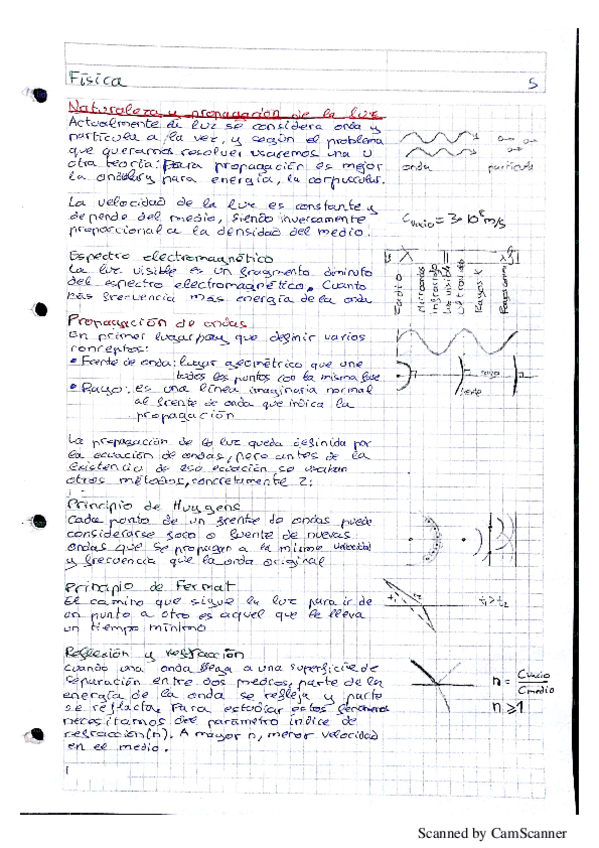 Física
5
Naturaleza y propagación de la luz
Actualmente la luz se considera onda y
partícula a la vez, y según el problema
que queramos resolver usaremos una u
otra teoría: para propagación es mejor
la ondular y para energía, la corpuscular.
onda
partícula
La velocidad de la luz es constante y
depende del medio, siendo inversamente
proporcional a la densidad del medio.
C vacío = 3·10⁸ m/s
Espectro electromagnético
La luz visible es un fragmento diminuto
del espectro electromagnético. Cuanto
más frecuencia más energía de la onda
Radio
Microondas
Infrarrojo
Luz visible
Ultravioleta
Rayos-X
Rayos gamma
Propagación de ondas
En primer lugar hay que definir varios
conceptos:
• Frente de onda: lugar geométrico que une
todos los puntos con la misma fase
• Rayo: es una línea imaginaria normal
al frente de onda que indica la
propagación
rayo
frente
La propagación de la luz queda definida por
la ecuación de ondas, pero antes de la
existencia de esa ecuación se usaban
otros métodos, concretamente 2:
Principio de Huygens
Cada punto de un frente de ondas puede
considerarse foco o fuente de nuevas
ondas que se propagan a la misma velocidad
y frecuencia que la onda original
Principio de Fermat
El camino que sigue la luz para ir de
un punto a otro es aquel que le lleva
un tiempo mínimo
t₁
t₂
t₁>t₂
Reflexión y refracción
Cuando una onda llega a una superficie de
separación entre dos medios, parte de la
energía de la onda se refleja y parte
se refracta. Para estudiar estos fenómenos
necesitamos del parámetro índice de
refracción(n). A mayor n, menor velocidad
en el medio.
n = Cvacío / Cmedio
n ≥ 1
Scanned by CamScanner